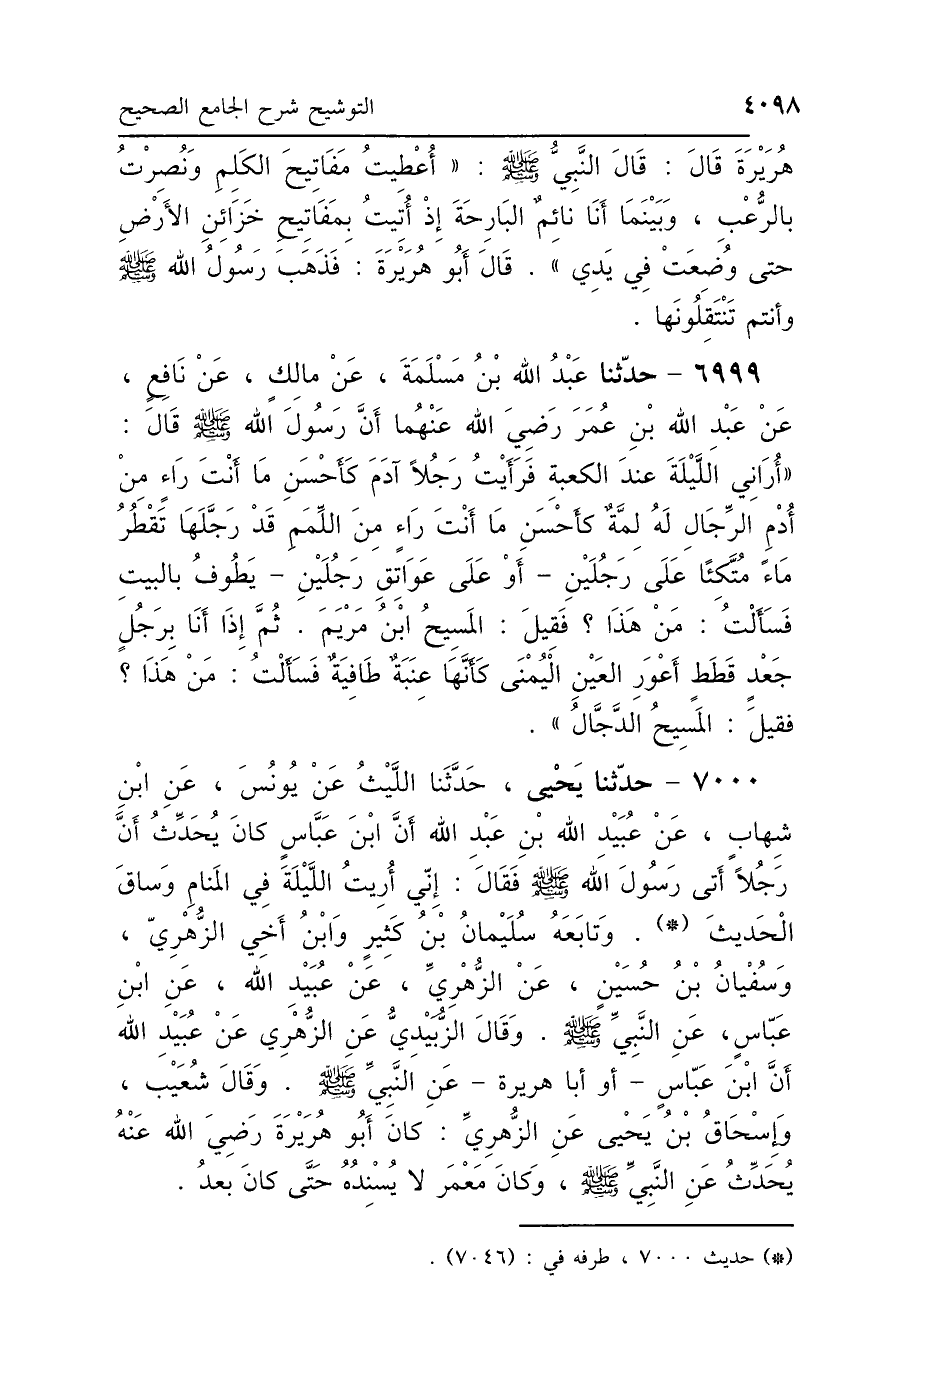 ٤٠٩٨ التوشيح شرح الجامع الصحيح
هُرَيْرَةَ قَالَ : قَالَ النَّبِيُّ ﷺ : « أُعْطِيتُ مَفَاتِيحَ الكَلِمِ وَنُصِرْتُ
بالرُّعْبِ ، وَبَيْنَمَا أَنَا نائِمٌ البَارِحَةَ إِذْ أُتِيتُ بِمَفَاتِيحِ خَزَائِنِ الأَرْضِ
حتى وُضِعَتْ فِي يَدِي » . قَالَ أَبُو هُرَيْرَةَ : فَذَهَبَ رَسُولُ الله ﷺ
وأنتم تَنْتَقِلُونَها .
٦٩٩٩ - حدّثنا عَبْدُ الله بْنُ مَسْلَمَةَ ، عَنْ مالِكٍ ، عَنْ نَافِعٍ ،
عَنْ عَبْدِ الله بْنِ عُمَرَ رَضِيَ الله عَنْهُما أَنَّ رَسُولَ الله ﷺ قَالَ :
«أُرَاني اللَّيْلَةَ عندَ الكعبةِ فَرَأَيْتُ رَجُلاً آدَمَ كَأَحْسَنِ مَا أَنْتَ رَاءٍ مِنْ
أُدْمِ الرِّجَالِ لَهُ لِمَّةٌ كأَحْسَنِ مَا أَنْتَ رَاءٍ مِنَ اللِّمَمِ قَدْ رَجَّلَهَا تَقْطُرُ
مَاءً مُتَّكِئًا عَلَى رَجُلَيْنِ - أَوْ عَلَى عَوَاتِقِ رَجُلَيْنِ - يَطُوفُ بالبيتِ
فَسَأَلْتُ : مَنْ هَذَا ؟ فَقِيلَ : المَسِيحُ ابْنُ مَرْيَمَ . ثُمَّ إِذَا أَنَا بِرَجُلٍ
جَعْدٍ قَطَطٍ أَعْوَرِ العَيْنِ الْيُمْنَى كَأَنَّهَا عِنَبَةٌ طَافِيَةٌ فَسَأَلْتُ : مَنْ هَذَا ؟
فقيلَ : المَسِيحُ الدَّجَّالُ » .
٧٠٠٠ - حدّثنا يَحْيى ، حَدَّثَنَا اللَّيْثُ عَنْ يُونُسَ ، عَنِ ابْنِ
شهابٍ ، عَنْ عُبَيْدِ الله بْنِ عَبْدِ الله أَنَّ ابْنَ عَبَّاسٍ كانَ يُحَدِّثُ أَنَّ
رَجُلاً أَتى رَسُولَ الله ﷺ فَقَالَ : إنّي أُرِيتُ اللَّيْلَةَ فِي المَنامِ وَساقَ
الْحَديثَ (*) . وَتابَعَهُ سُلَيْمانُ بْنُ كَثيرٍ وَابْنُ أَخي الزُّهْرِيِّ ،
وَسُفْيانُ بْنُ حُسَيْنٍ ، عَنْ الزُّهْرِيِّ ، عَنْ عُبَيْدِ الله ، عَنِ ابْنِ
عَبّاسٍ، عَنِ النَّبِيِّ ﷺ . وَقَالَ الزُّبَيْدِيُّ عَنِ الزُّهْرِي عَنْ عُبَيْدِ الله
أَنَّ ابْنَ عَبّاسٍ - أو أبا هريرة - عَنِ النَّبِيِّ ﷺ . وَقَالَ شُعَيْب ،
وَإِسْحَاقُ بْنُ يَحْيى عَنِ الزُّهْرِيِّ : كانَ أَبُو هُرَيْرَةَ رَضِيَ الله عَنْهُ
يُحَدِّثُ عَنِ النَّبِيِّ ﷺ ، وَكانَ مَعْمَر لا يُسْنِدُهُ حَتَّى كانَ بعدُ .
(*) حديث ٧٠٠٠ ، طرفه في : (٧٠٤٦) .